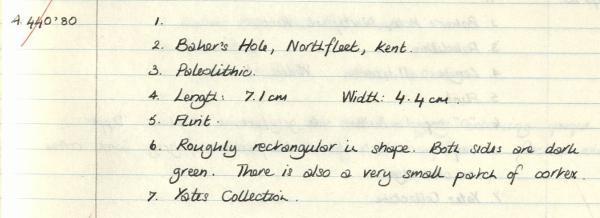 A.440'80
1.
2. Baker's Hole, Northfleet, Kent.
3. Paleolithic.
4. Length: 7.1cm Width: 4.4cm.
5. Flint.
6. Roughly rectangular in shape. Both sides are dark
green. There is also a very small patch of cortex.
7. Yates Collection.